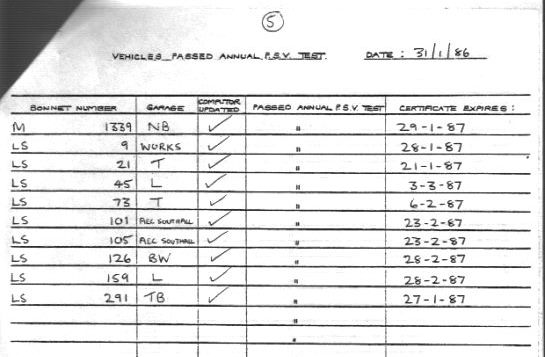 5
VEHICLES PASSED ANNUAL P.S.V. TEST. DATE : 31/1/86
BONNET NUMBER GARAGE COMPUTOR UPDATED PASSED ANNUAL P.S.V. TEST CERTIFICATE EXPIRES :
M 1339 NB ✓ " 29-1-87
LS 9 WORKS ✓ " 28-1-87
LS 21 T ✓ " 21-1-87
LS 45 L ✓ " 3-3-87
LS 73 T ✓ " 6-2-87
LS 101 AEC SOUTHALL ✓ " 23-2-87
LS 105 AEC SOUTHALL ✓ " 23-2-87
LS 126 BW ✓ " 28-2-87
LS 159 L ✓ " 28-2-87
LS 291 TB ✓ " 27-1-87
"
"